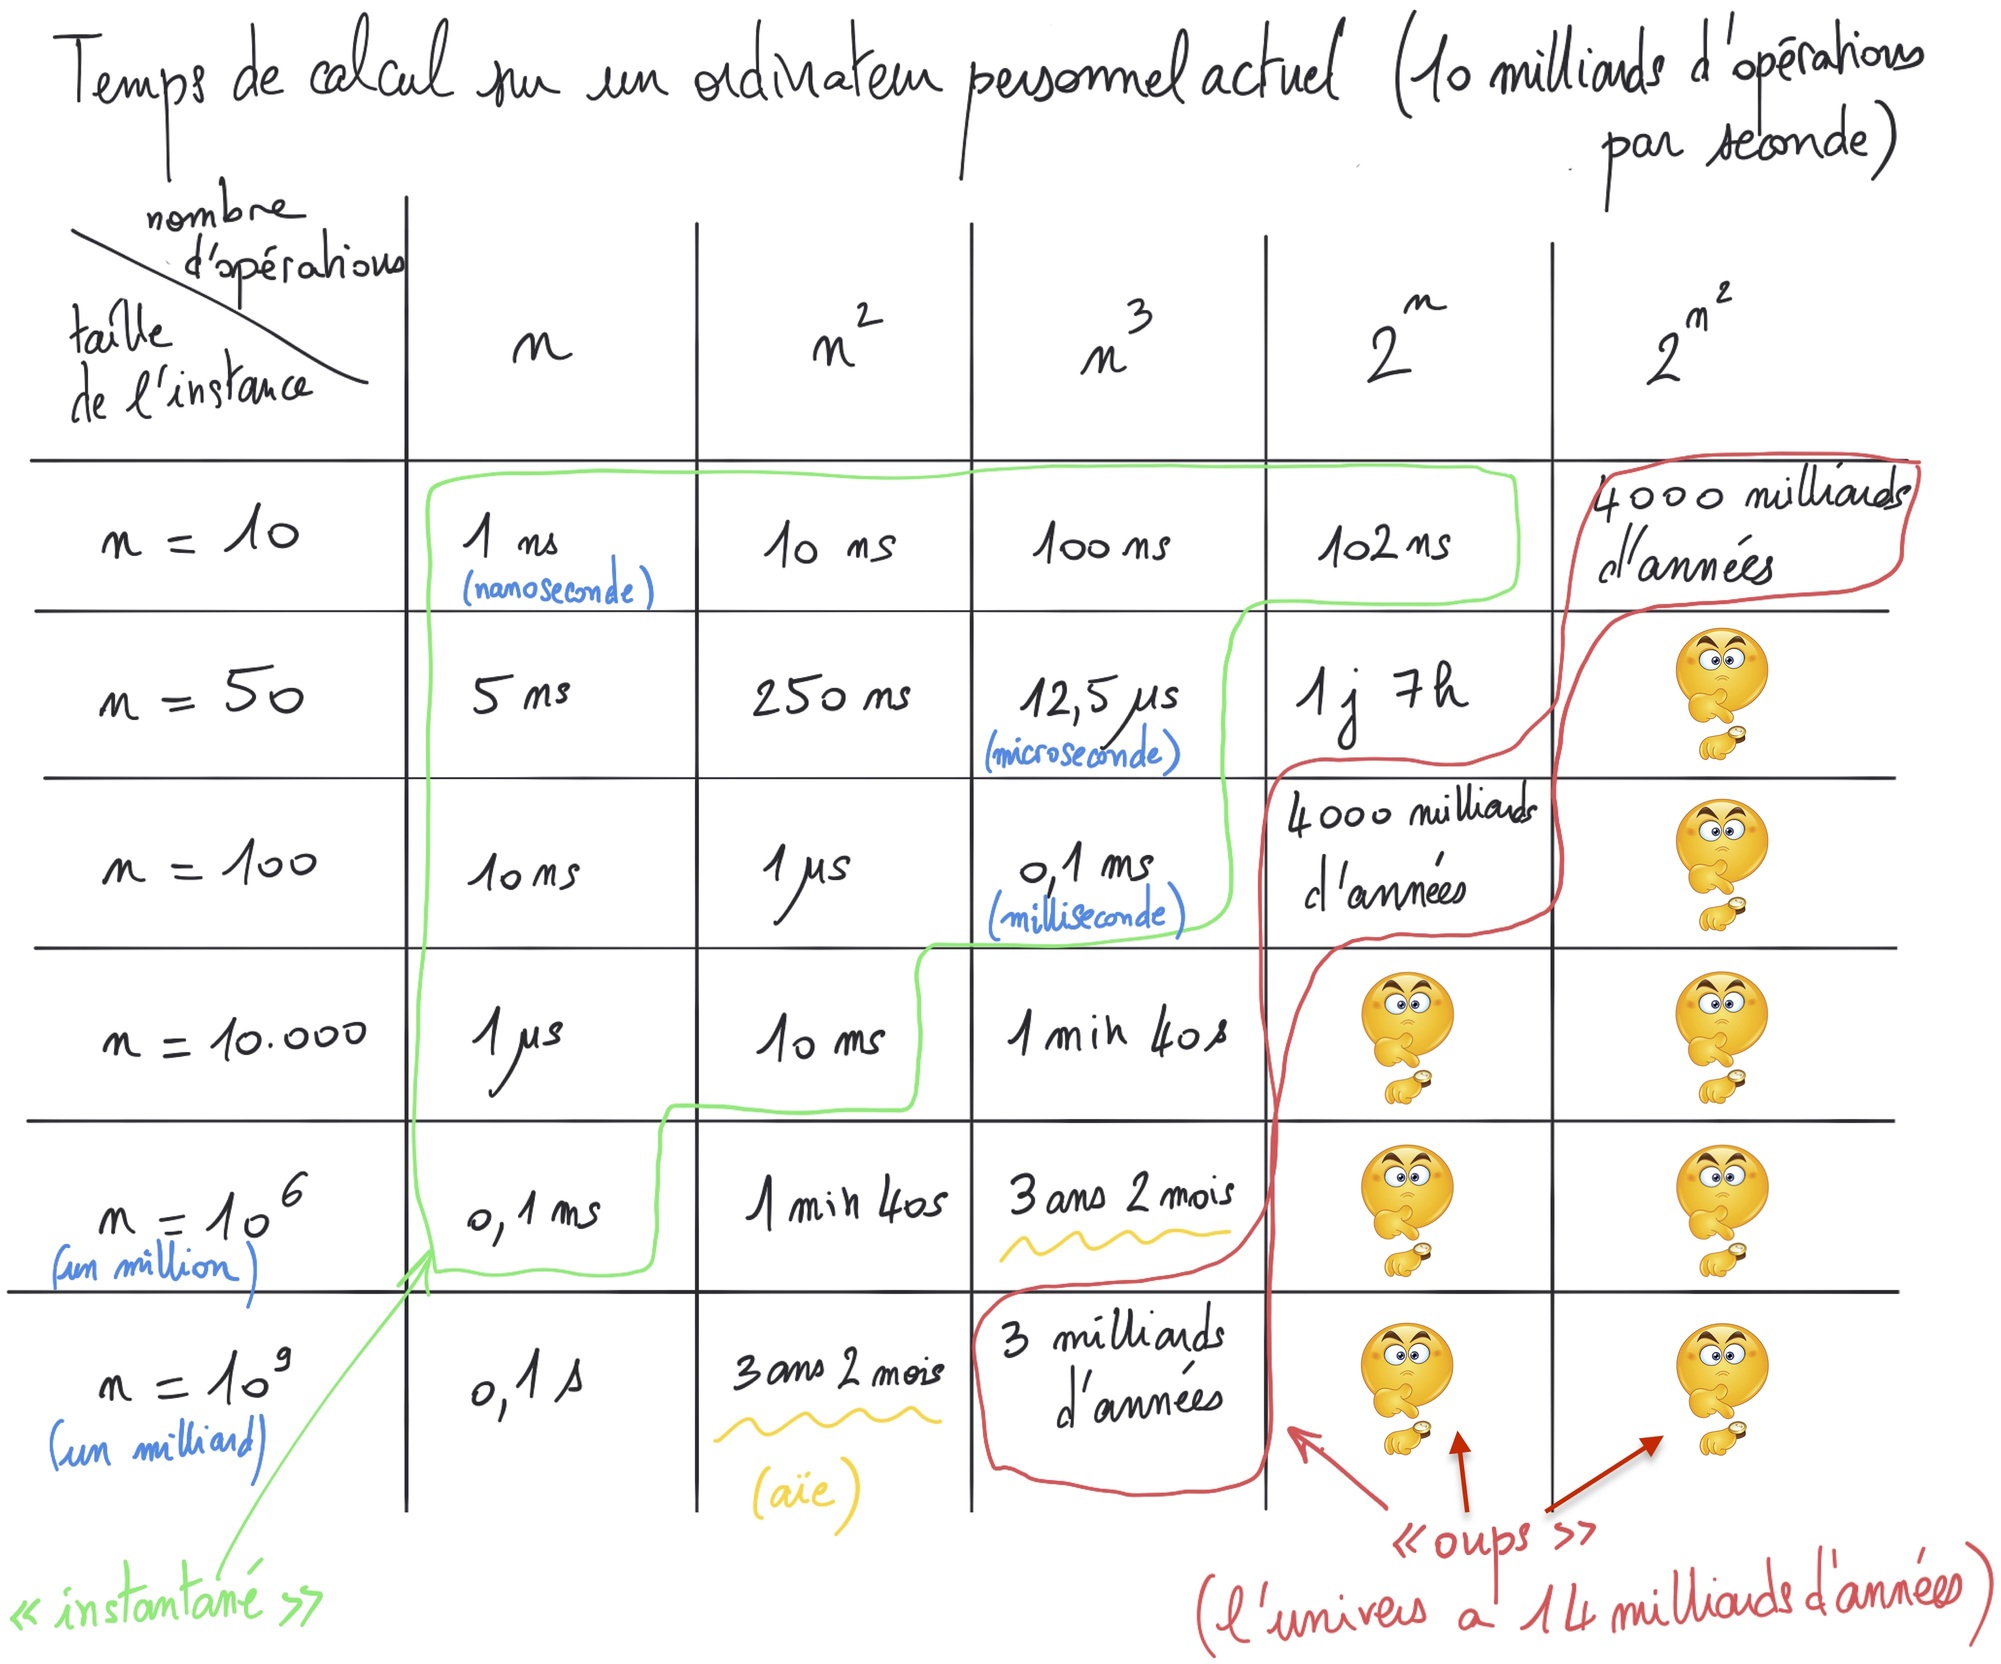 Temps de calcul sur un ordinateur personnel actuel (10 milliards d'opérations
par seconde)
nombre
d'opérations
taille
de l'instance
n
n²
n³
2ⁿ
2^n²
n = 10
1 ns
(nanoseconde)
10 ns
100 ns
102 ns
4000 milliards
d'années
n = 50
5 ns
250 ns
12,5 µs
(microseconde)
1 j 7h
n = 100
10 ns
1 µs
0,1 ms
(milliseconde)
4000 milliards
d'années
n = 10.000
1 µs
10 ms
1 min 40s
n = 10⁶
(un million)
0,1 ms
1 min 40s
3 ans 2 mois
n = 10⁹
(un milliard)
0,1 s
3 ans 2 mois
(aïe)
3 milliards
d'années
« instantané »
« oups »
(l'univers a 14 milliards d'années)